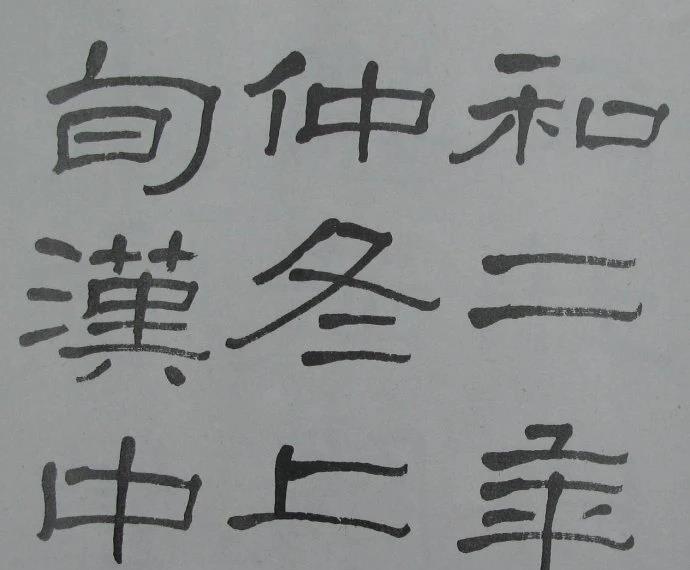 和二年
仲冬上
旬漢中